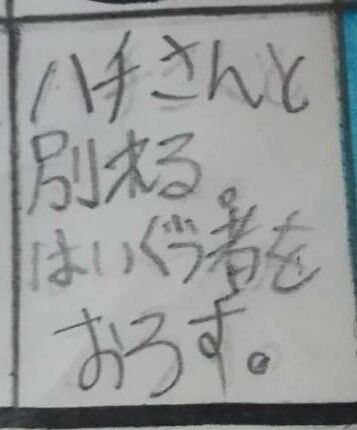 ハチさんと
別れる。
はいぐう者を
おろす。